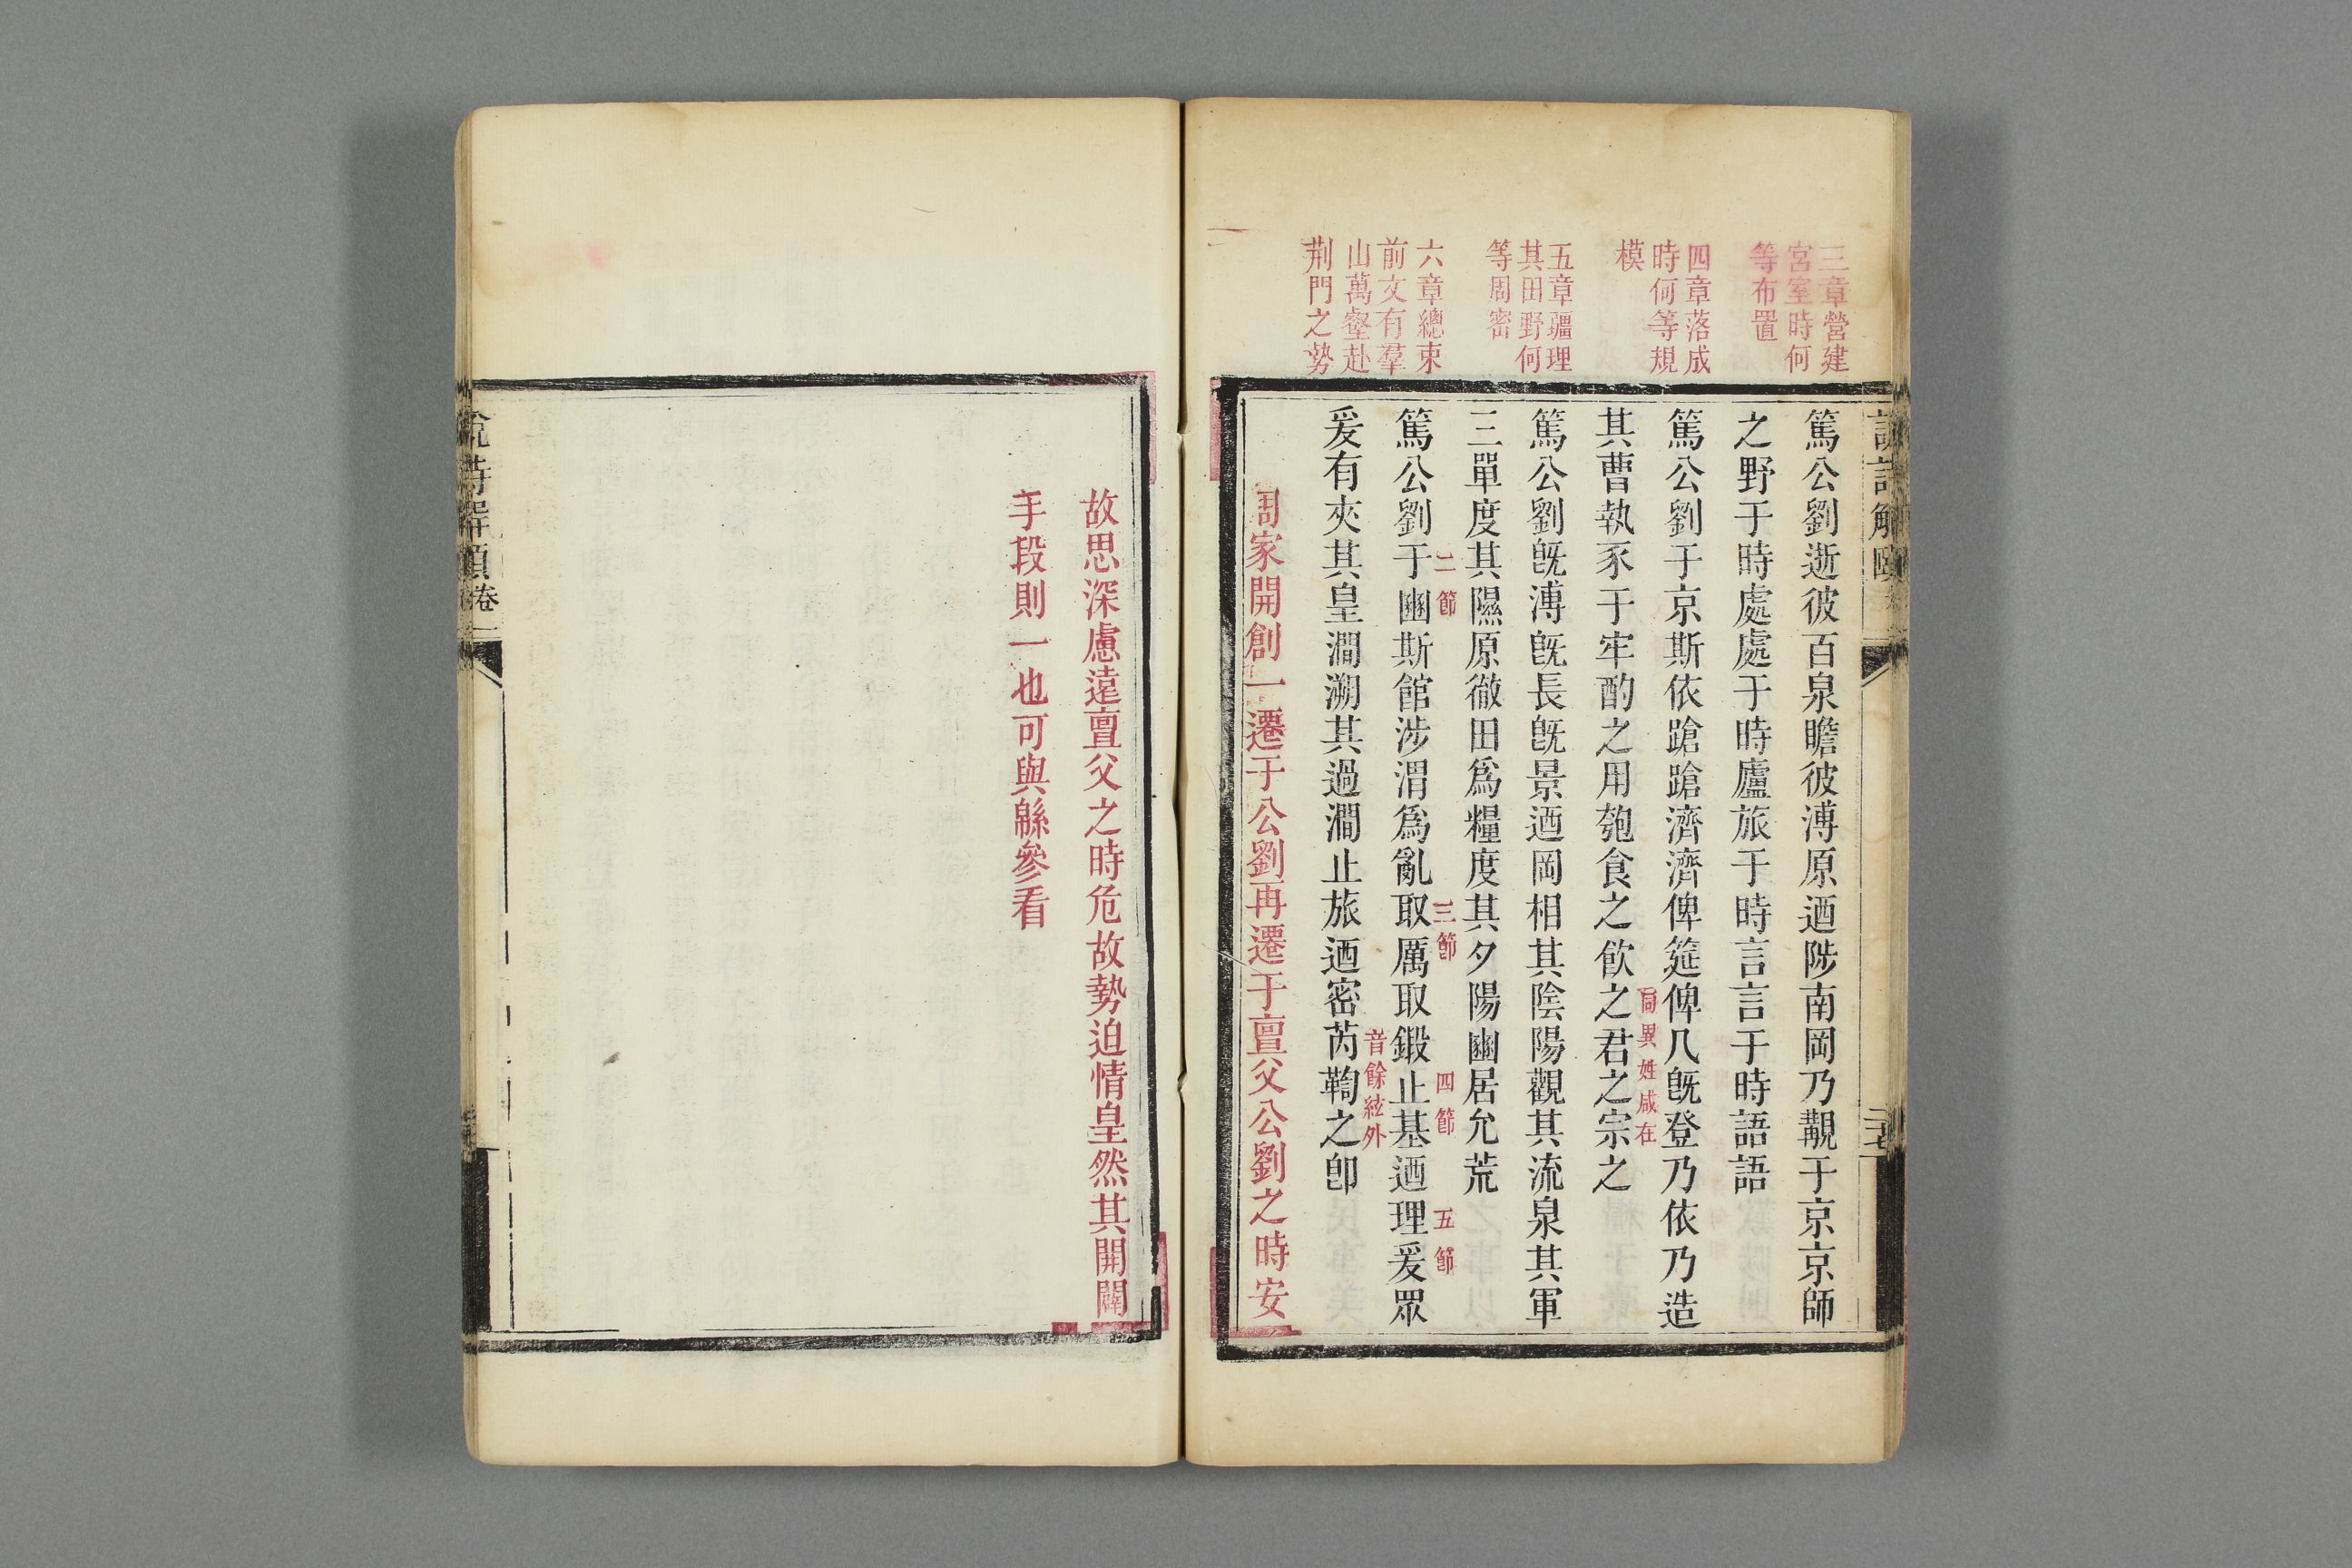 三章營建
宮室時何
等布置
四章落成
時何等規
模
五章疆理
其田野何
等周密
六章總束
前文有羣
山萬壑赴
荆門之勢
篤公劉逝彼百泉瞻彼溥原迺陟南岡乃覯于京京師
之野于時處處于時廬旅于時言言于時語語
篤公劉于京斯依蹌蹌濟濟俾筵俾几旣登乃依乃造
同異姓咸在
其曹執豕于牢酌之用匏食之飮之君之宗之
篤公劉旣溥旣長旣景迺岡相其陰陽觀其流泉其軍
三單度其隰原徹田爲糧度其夕陽豳居允荒
二節 三節 四節 五節
篤公劉于豳斯館涉渭爲亂取厲取鍛止基迺理爰眾
音餘絃外
爰有夾其皇澗溯其過澗止旅迺密芮鞫之卽
周家開創一遷于公劉再遷于亶父公劉之時安
故思深慮遠亶父之時危故勢迫情皇然其開闢
手段則一也可與緜參看
說詩解頤卷一